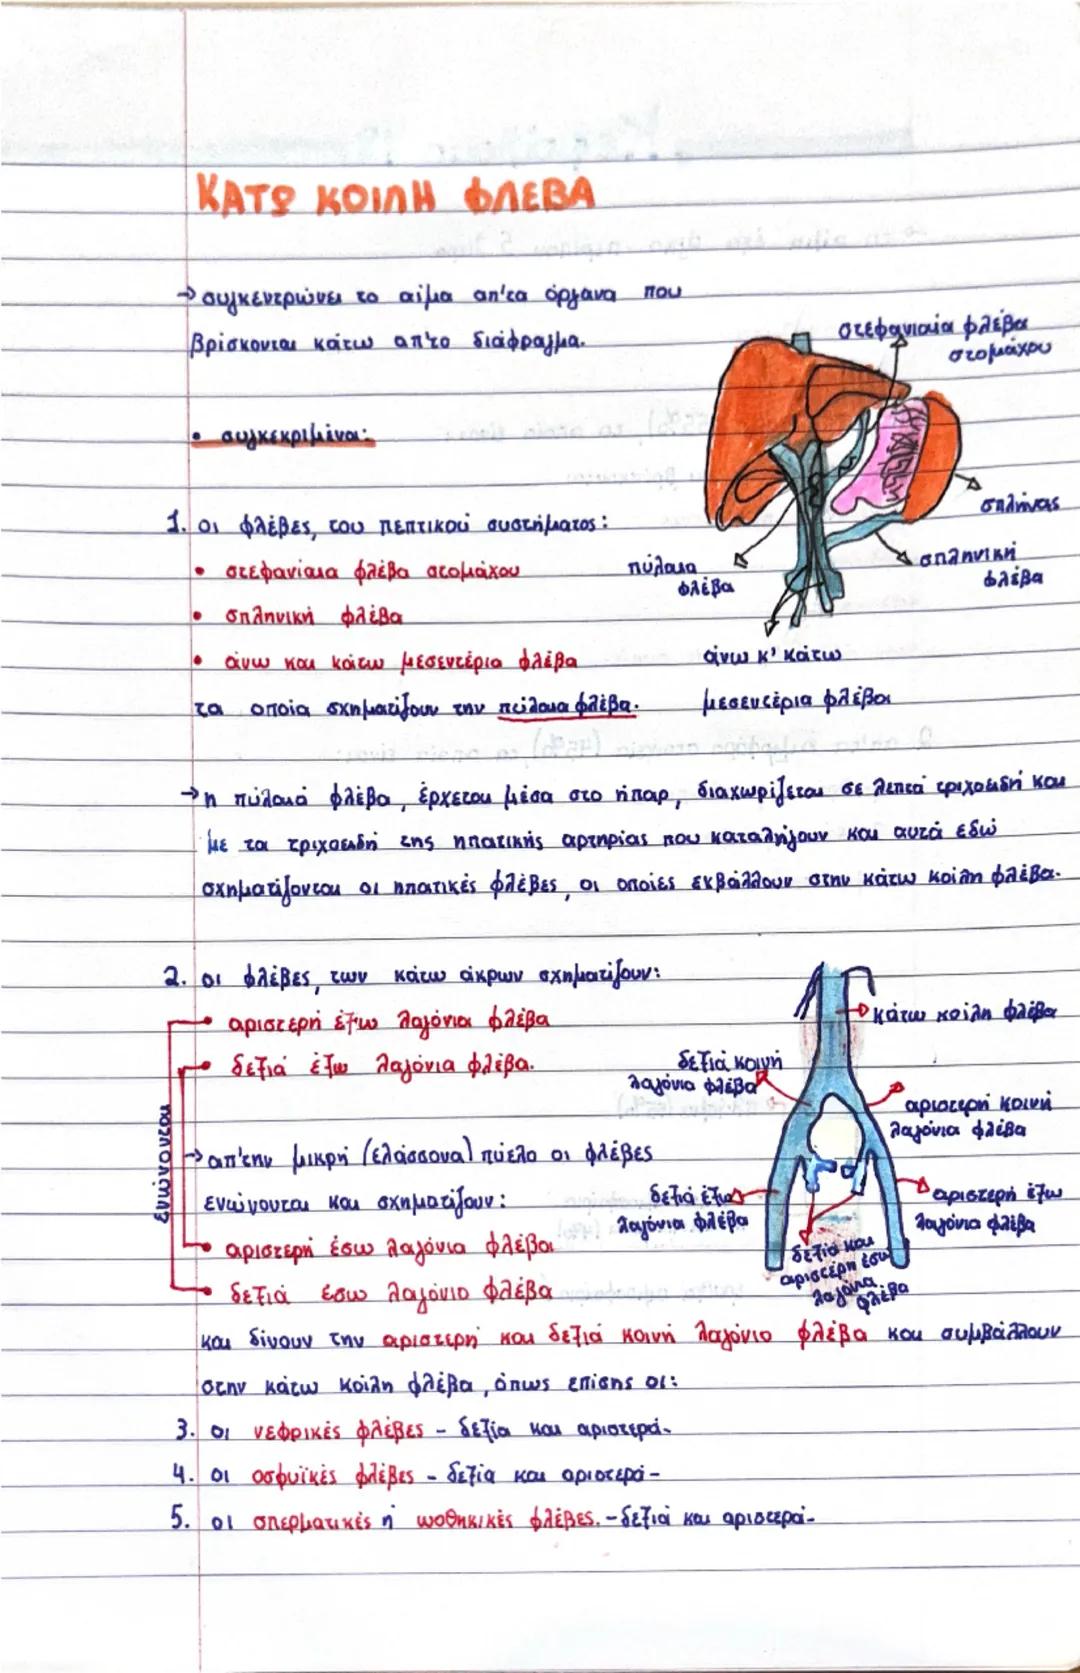 ΚΑΤΩ ΚΟΙΛΗ ΦΛΕΒΑ
→ συγκεντρώνει το αίμα απ'τα όργανα που
βρίσκονται κάτω απ'το διάφραγμα.
• συγκεκριμένα:
1. οι φλέβες, του πεπτικού συστήματος:
• στεφανίαια φλέβα στομάχου
• σπληνική φλέβα
• άνω και κάτω μεσεντέρια φλέβα
τα οποία σχηματίζουν την πύλαια φλέβα.
στεφανιαία φλέβα
στομάχου
σπλήνας
σπληνική
φλέβα
πύλαια
φλέβα
άνω κ' κάτω
μεσεντέρια φλέβα
→ η πύλαιά φλέβα, έρχεται μέσα στο ήπαρ, διαχωρίζεται σε λεπτά τριχοειδή και
με τα τριχοειδή της ηπατικής αρτηρίας που καταλήγουν και αυτά εδώ
σχηματίζονται οι ηπατικές φλέβες, οι οποίες εκβάλλουν στην κάτω κοίλη φλέβα.
2. οι φλέβες, των κάτω άκρων σχηματίζουν:
• αριστερή έξω λαγόνια φλέβα
• δεξιά έξω λαγόνια φλέβα.
ενώνονται
→ απ'την μικρή (ελάσσονα) πύελο οι φλέβες
ενώνονται και σχηματίζουν:
• αριστερή έσω λαγόνια φλέβα
• δεξιά έσω λαγόνιο φλέβα
κάτω κοίλη φλέβα
δεξιά κοινή
λαγόνιο φλέβα
αριστερή κοινή
λαγόνια φλέβα
δεξιά έξω
λαγόνια φλέβα
αριστερή έξω
λαγόνια φλέβα
δεξιά και
αριστέρη έσω
λαγόνια
φλέβα
και δίνουν την αριστερή και δεξιά κοινή λαγόνιο φλέβα και συμβάλλουν
στην κάτω κοίλη φλέβα, όπως επίσης οι:
3. οι νεφρικές φλέβες - δεξία και αριστερά-
4. οι οσφυϊκές φλέβες - δεξία και αριστερά-
5. οι σπερματικές ή ωοθηκικές φλέβες. -δεξιά και αριστερά-